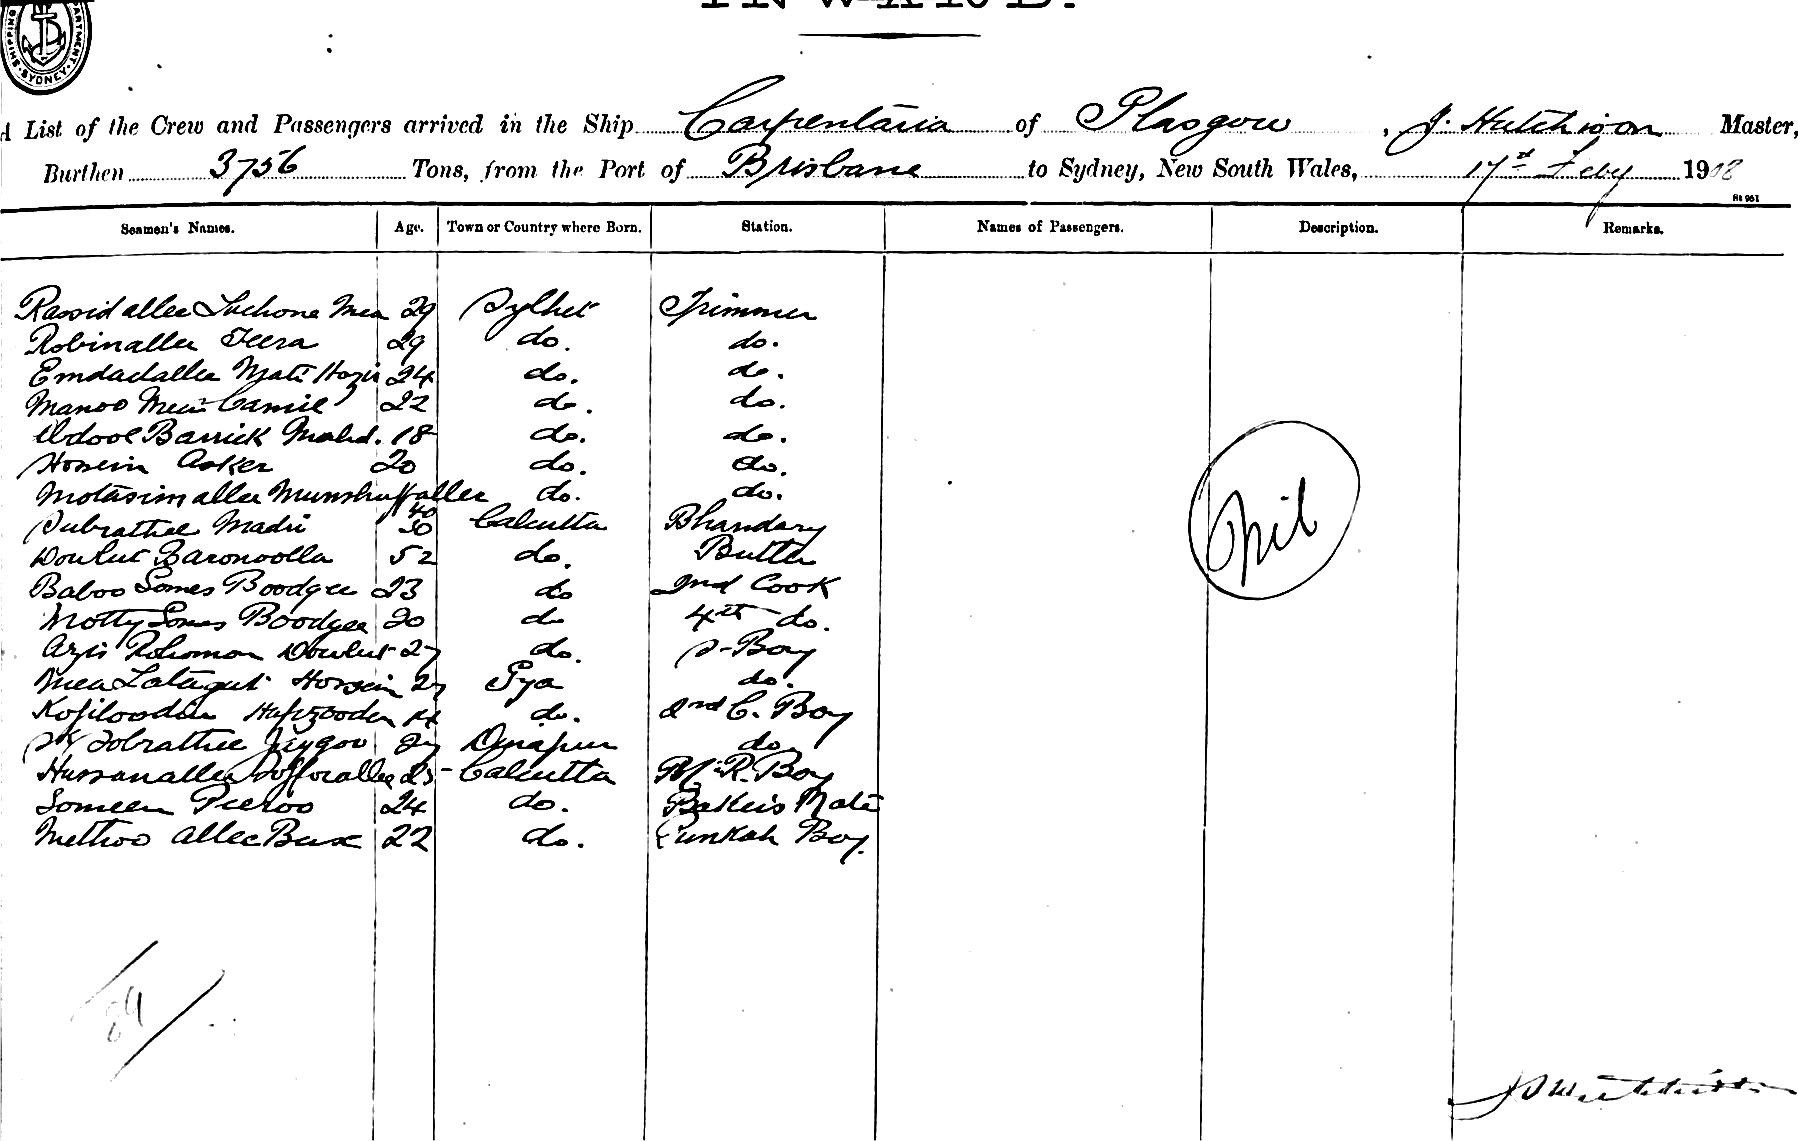 INWARD.
SHIPPING DEPARTMENT. SYDNEY
A List of the Crew and Passengers arrived in the Ship Carpentaria of Glasgow, J. Hutchison Master,
Burthen 3756 Tons, from the Port of Brisbane to Sydney, New South Wales, 17th Feby 1908
Seamen's Names. Age. Town or Country where Born. Station. Names of Passengers. Description. Remarks.
Rassid allee Mea 29 Sylhet Trimmer
Robinallee Teera 29 do. do.
Emdadallee Hazir 24 do. do.
Manoo Mea Camil 22 do. do.
Abdool Barrick Mahd. 18 do. do.
Hossein Asker 20 do. do.
Motasimallee Munshuffallee 40 do. do.
Subrattee Madri 50 Calcutta Bhandary
Doulut Baronoolla 52 do. Butler
Baboo Somes Boodgee 23 do 2nd Cook
Motty Somes Boodgee 20 do 4th do.
Azis Rohoman Doulut 27 do. S-Boy
Mea Hossein 27 Gya do.
Kofiloodin Hafizooden 14 do. 2nd C. Boy
Sk Sobrattee 27 Dinapur do
Hussanallee 25 Calcutta M. R. Boy
Someen Peeroo 24 do. Bakers Mate
Methoo Allee Bux 22 do. Punkah Boy.
Nil
84